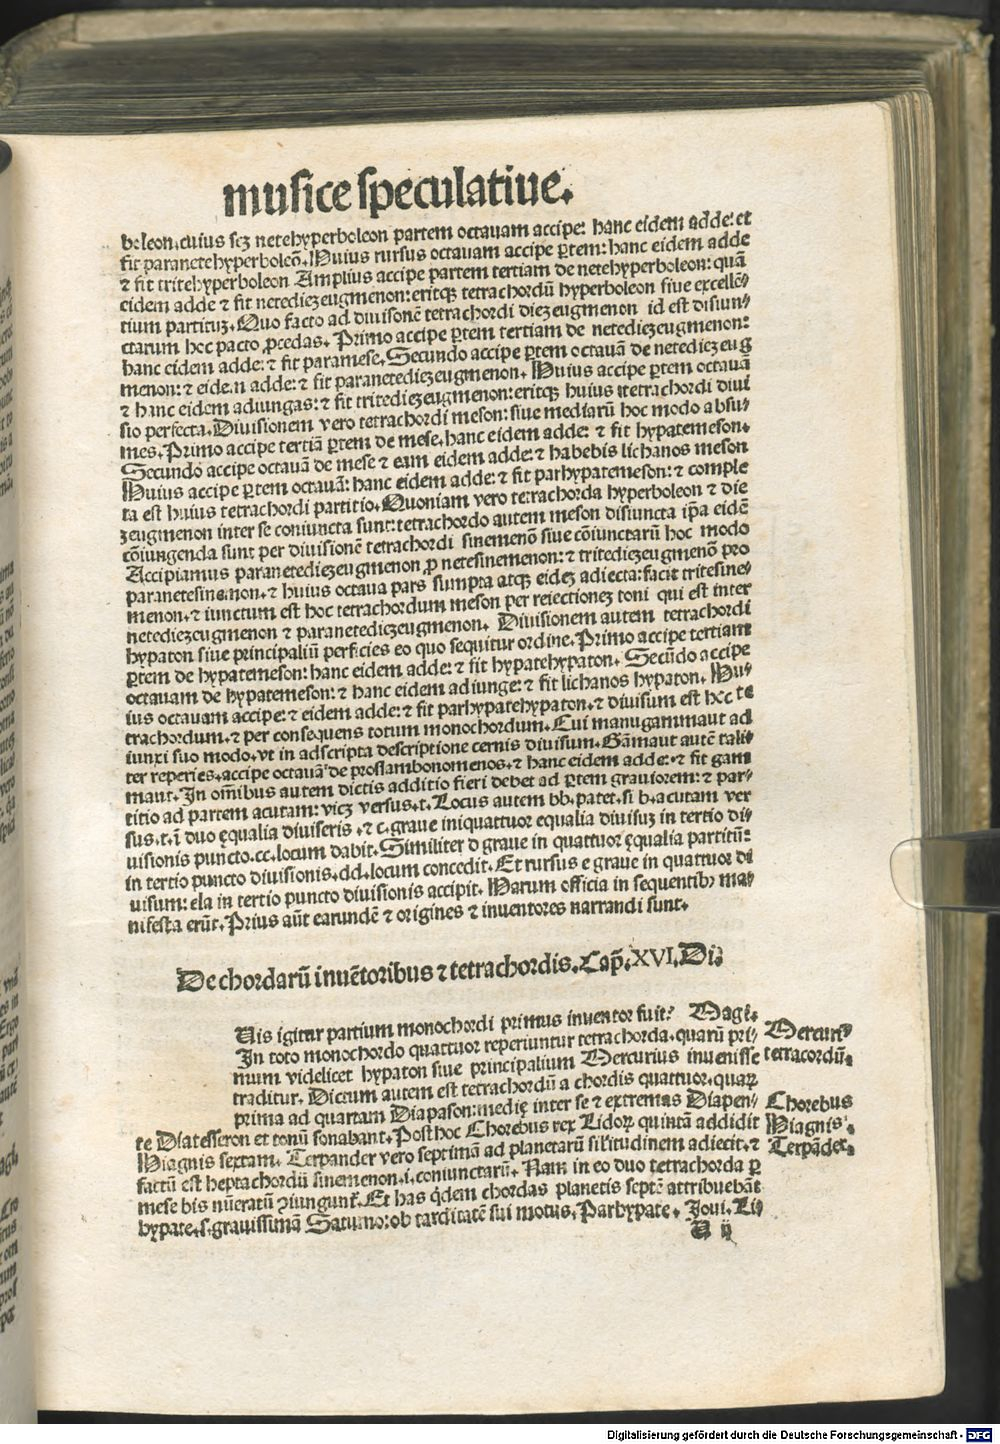 musice speculatiue.
boleon.cuius scz netehyperboleon partem octauam accipe: hanc eidem adde: et
fit paranetehyperboleō. Huius rursus octauam accipe ꝑtem: hanc eidem adde
⁊ fit tritehyperboleon Amplius accipe partem tertiam de netehyperboleon: quā
eidem adde ⁊ fit netediezeugmenon: eritqꝫ tetrachordū hyperboleon siue excellē-
tium partituꝫ. Quo facto ad diuisionē tetrachordi diezeugmenon id est disiun-
ctarum hoc pacto ꝓcedas. Primo accipe ꝑtem tertiam de netediezeugmenon:
hanc eidem adde: ⁊ fit paramese. Secundo accipe ꝑtem octauā de netediezeug
menon: ⁊ eidem adde: ⁊ fit paranetediezeugmenon. Huius accipe ꝑtem octauā
⁊ hanc eidem adiungas: ⁊ fit tritediezeugmenon: eritqꝫ huius tetrachordi diui
sio perfecta. Diuisionem vero tetrachordi meson: siue mediarū hoc modo absu-
mes. Primo accipe tertiā ꝑtem de mese. hanc eidem adde: ⁊ fit hypatemeson.
Secundo accipe octauā de mese ⁊ eam eidem adde: ⁊ habebis lichanos meson
Huius accipe ꝑtem octauā: hanc eidem adde: ⁊ fit parhypatemeson: ⁊ comple
ta est huius tetrachordi partitio. Quoniam vero tetrachorda hyperboleon ⁊ die
zeugmenon inter se coniuncta sunt: tetrachordo autem meson disiuncta ip̄a eidē
cōiungenda sunt per diuisionē tetrachordi sinemenō siue cōiunctarū hoc modo
Accipiamus paranetediezeugmenon ꝓ netesinemenon: ⁊ tritediezeugmenō pro
paranetesinemenon. ⁊ huius octaua pars sumpta atqꝫ eideꝫ adiecta: facit tritesine-
menon. ⁊ iunctum est hoc tetrachordum meson per reiectioneꝫ toni qui est inter
netediezeugmenon ⁊ paranetediezeugmenon. Diuisionem autem tetrachordi
hypaton siue principaliū perficies eo quo sequitur ordine. Primo accipe tertiam
ꝑtem de hypatemeson: hanc eidem adde: ⁊ fit hypatehypaton. Secūdo accipe
octauam de hypatemeson: ⁊ hanc eidem adiunge: ⁊ fit lichanos hypaton. Hu-
ius octauam accipe: ⁊ eidem adde: ⁊ fit parhypatehypaton. ⁊ diuisum est hoc te
trachordum. ⁊ per consequens totum monochordum. Cui manu gammaut ad
iunxi suo modo. vt in adscripta descriptione cernis diuisum. Gāmaut autē tali-
ter reperies. accipe octauā de proslambonomenos. ⁊ hanc eidem adde: ⁊ fit gam
maut. In om̄ibus autem dictis additio fieri debet ad ꝑtem grauiorem: ⁊ par-
titio ad partem acutam: vicꝫ versus .t. Locus autem bb. patet. si b. acutam ver
sus .t. ī duo ęqualia diuiseris. ⁊ c. graue iniquattuor equalia diuisuꝫ in tertio di-
uisionis puncto. cc. locum dabit. Similiter d graue in quattuor ęqualia partitū:
in tertio puncto diuisionis. dd. locum concedit. Et rursus e graue in quattuor di
uisum: ela in tertio puncto diuisionis accipit. Harum officia in sequentibꝫ ma-
nifesta erūt. Prius aūt earundē ⁊ origines ⁊ inuentores narrandi sunt.
De chordarū inuētoribus ⁊ tetrachordis. Cap̄. XVI. Di.
Uis igitur partium monochordi primus inuentor fuit? Magi.
In toto monochordo quattuor reperiuntur tetrachorda. quarū pri-
mum videlicet hypaton siue principalium Mercurius inuenisse
traditur. Dictum autem est tetrachordū a chordis quattuor. quaꝝ
prima ad quartam Diapason: medię inter se ⁊ extremas Diapen-
te Diatesseron et tonū sonabant. Post hoc Chorebus rex Lidoꝝ quintā addidit
Hiagnis sextam. Terpander vero septimā ad planetarū sil'itudinem adiecit. ⁊
factū est heptachordū sinemenon .i. coniunctarū. Nam in eo duo tetrachorda ꝑ
mese bis nūeratū ɔiungunt᷑. Et has q̄dem chordas planetis septē attribuebāt
hypate .s. grauissimā Saturno: ob tarditatē sui motus. Parhypate. Joui. Li-
Mercuri-
tetracordū.
Chorebus
Hiagnis.
Terpāder.
U ij
Digitalisierung gefördert durch die Deutsche Forschungsgemeinschaft - DFG